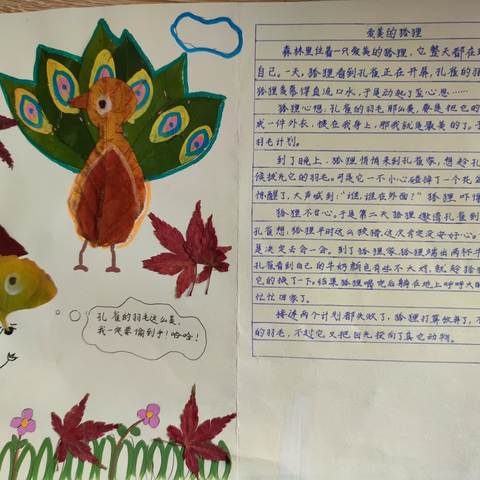 孔雀的羽毛这么美,
我一定要偷到手!哈哈!
爱美的狐狸
森林里住着一只爱美的狐狸,它整天都在
自己。一天,狐狸看到孔雀正在开屏,孔雀的羽
狐狸羡慕得直流口水,于是动起了歪心思……
狐狸心想,孔雀的羽毛那么美,要是把它的
成一件外衣,披在我身上,那我就是最美的了。于
羽毛计划。
到了晚上,狐狸悄悄来到孔雀家,想趁孔
候拔光它的羽毛。可是它一不小心碰掉了一个花
惊醒了,大声喊到:“谁,谁在外面?”狐狸吓得
狐狸不甘心。于是第二天狐狸邀请孔雀到
孔雀想,狐狸平时这么狡猾,这次肯定没安好心。
是决定去会一会。到了狐狸家,狐狸端出两杯牛
孔雀看到自己的牛奶颜色有些不大对,就趁狐狸
它的换了一下。结果狐狸喝完后躺在地上呼呼大
忙忙回家了。
接连两个计划都失败了,狐狸打算放弃了,不
的羽毛,不过它又把目光投向了其它动物。